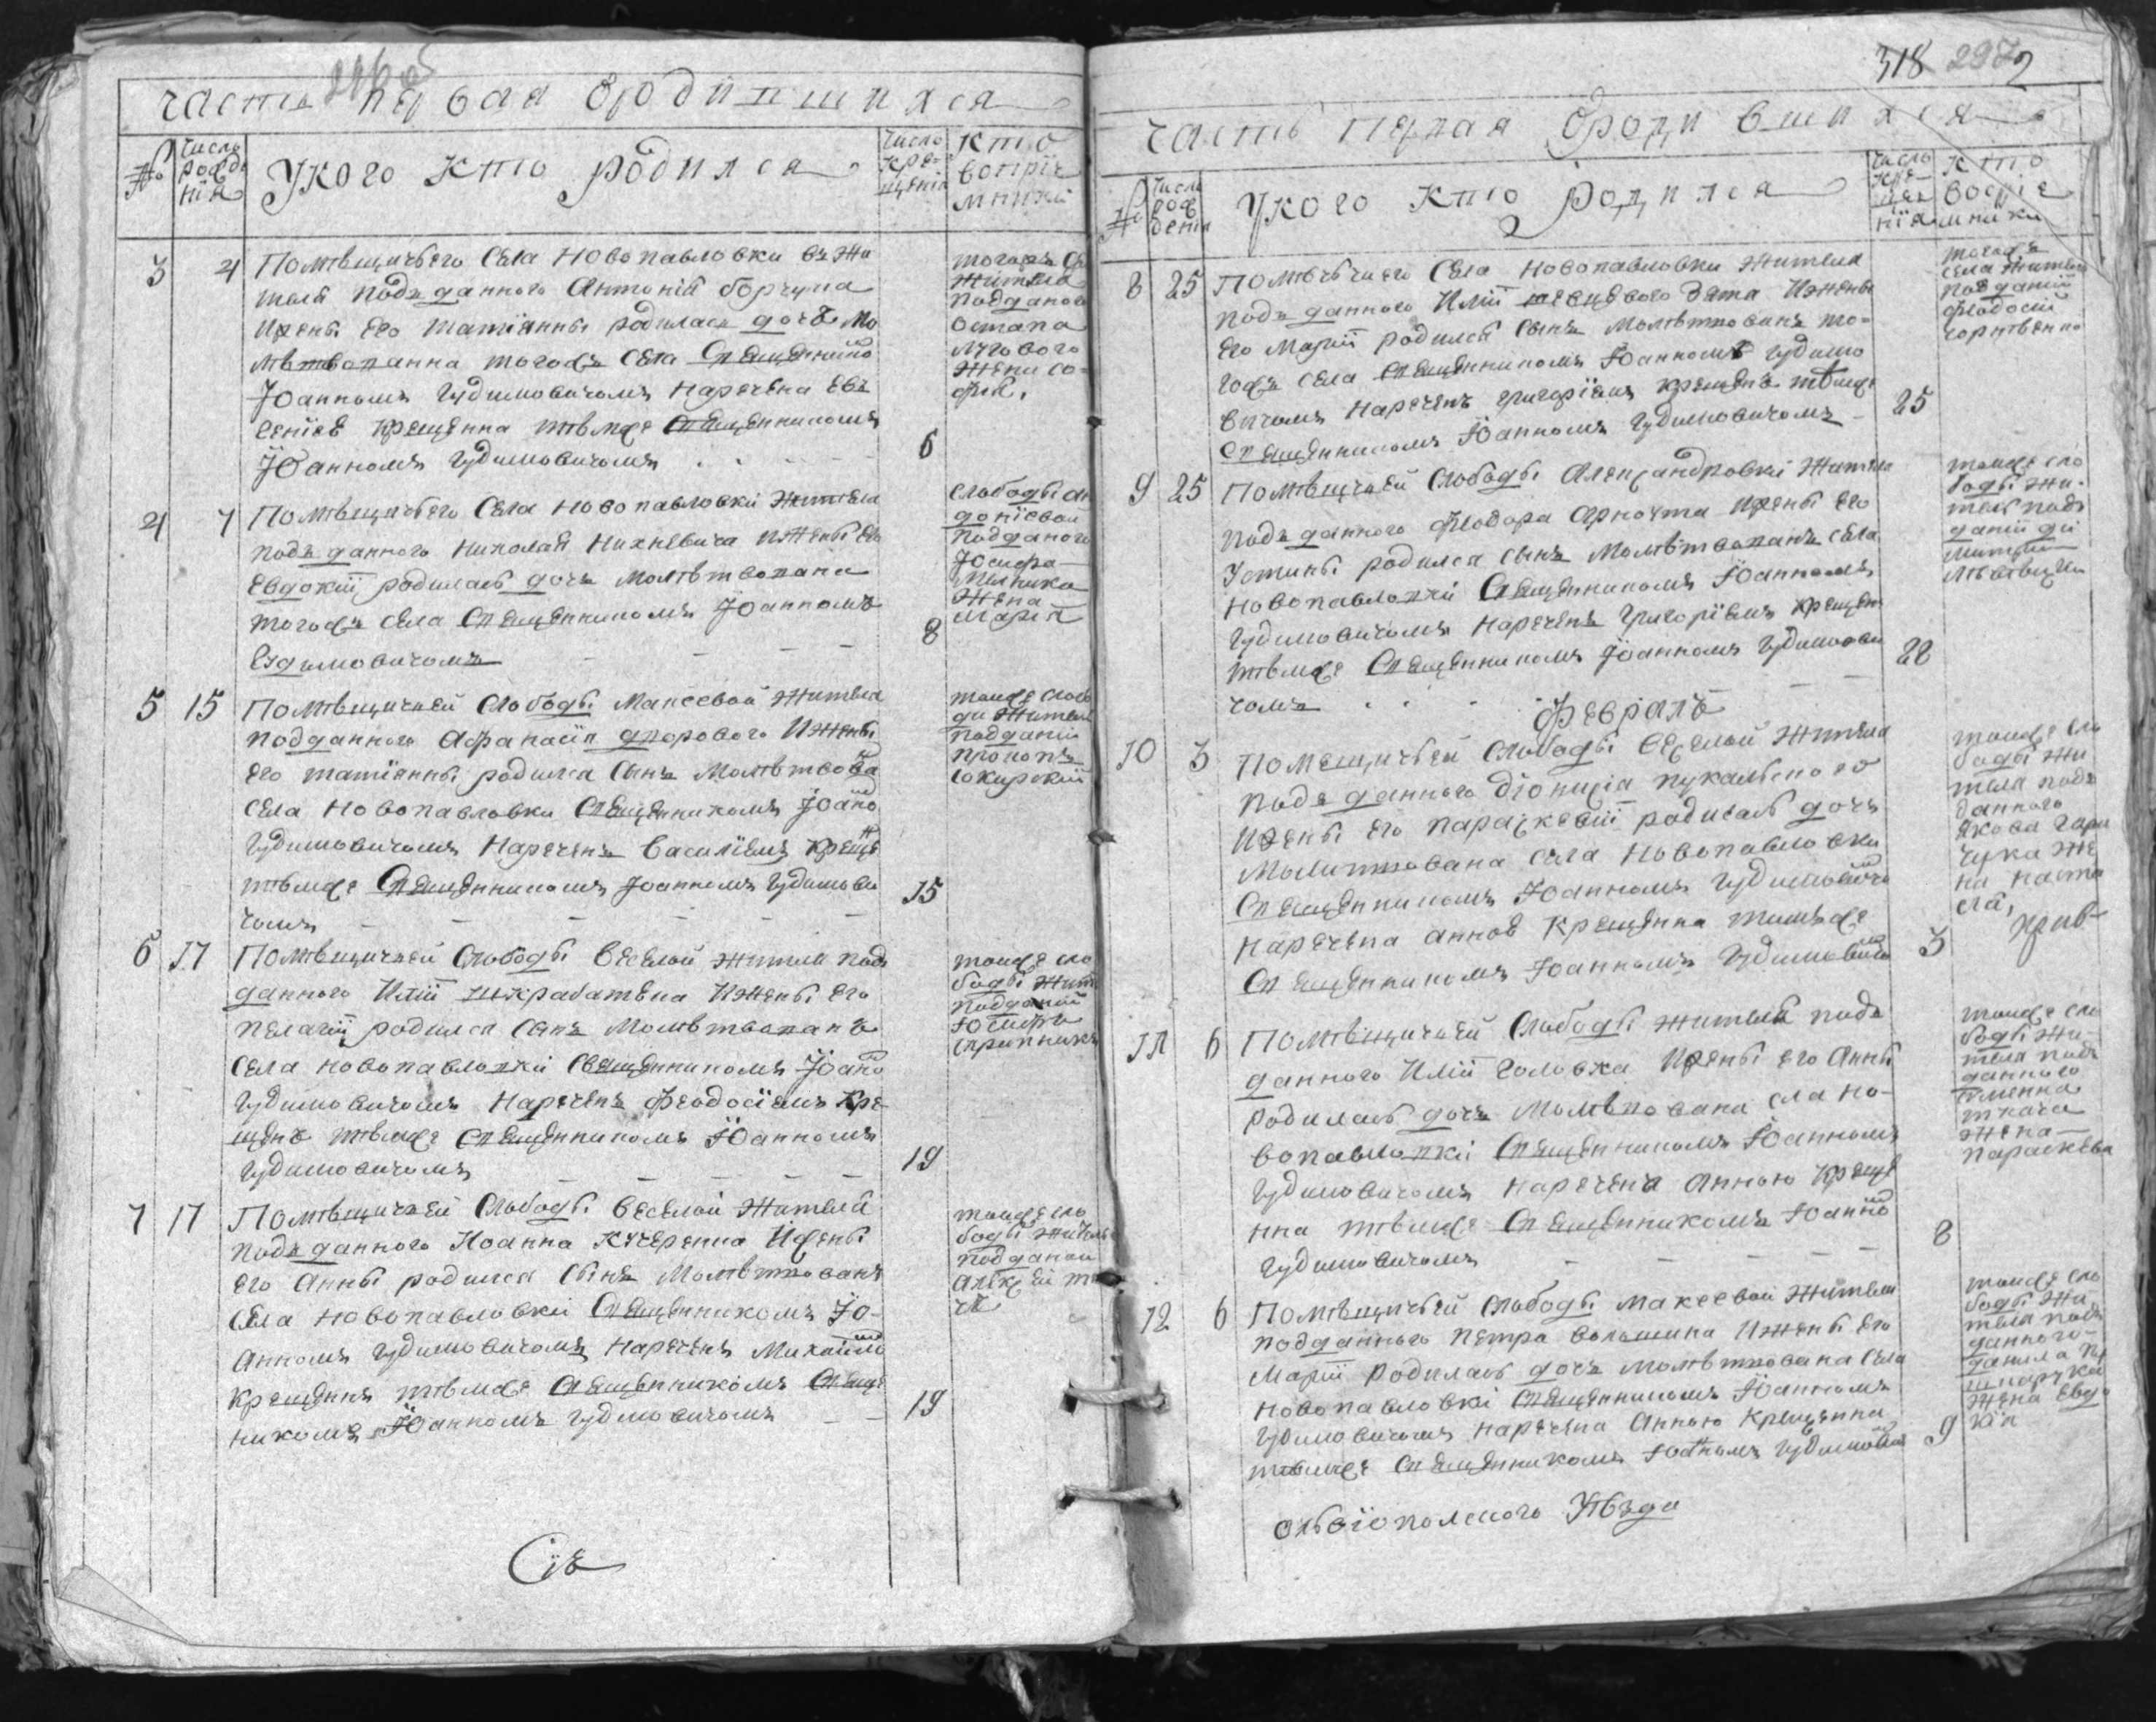 часть первая ѻродившихся
№
число рожденія
Укого кто родился
число крещенія
кто воспріемники
3 4 Помѣщичьего Села Новопавловки Жи
теля подъданного Антонія
Ижены Его татіанны родилась дочь мо
литвованна тогожъ Села Священнико
Іоанномъ Гудимовичомъ Наречена Ев
сеніев Крещенна тѣмже Священникомъ
Іоанномъ Гудимовичомъ 6
тогожъ
Жителя
подданого
Остапа
лугового
Жена со-
фія,
4 7 Помѣщичьего Села Новопавловки Жителя
подъданного Николая Ижены его
Евдокіи родилась дочь молитвована
тогожъ Села Священникомъ Іоанномъ
Гудимовичомъ 8
Слободы
подданого
Іосифа
Мелника
Жена
Марія
5 15 Помѣщичьей Слободы Макеевой Жителя
подданного Афанасія дворового Ижены
Его татіанны родился Сынъ Молитвова
Села Новопавловки Священникомъ Іоано
Гудимовичомъ Нареченъ Василіемъ Креще
тѣмже Священникомъ Іоанномъ Гудимови
чомъ 15
тоиже слобо
ды Житель
подданій
прокопъ
6 17 Помѣщичьей Слободы Веселой жителя подъ
данного Иліи Ижены Его
пелагіи родился Сынъ Молитвованъ
Села новопавловки Священникомъ Іоано
Гудимовичомъ Нареченъ Феодосіемъ Кре
щенъ тѣмже Священникомъ Іоанномъ
Гудимовичомъ 19
тоиже сло
боды Жит
подданій
Іосифъ
7 17 Помѣщичьей Слободы Веселой Жителя
подъданного Иоанна Кучеренка Иженыı
его Анны родился Сынъ Молитвованъ
Села Новопавловки Священникомъ Іо-
анномъ Гудимовичомъ Нареченъ Михайло
Крещенъ тѣмже Священникомъ Свяще
никомъ Іоанномъ Гудимовичомъ 19
тоиже сло
боды житель
подданои
Алексей
318 2
часть первая ѻродившихся
№
число рождения
Укого кто родился
число крещенія
кто воспріемники
8 25 Села Новопавловки Жителя
подъданного Иліи зятя Ижены
Его Маріи родился Сынъ Молитвованъ то-
гожъ Села Священникомъ Іоанномъ Гудимо
вичомъ Нареченъ Григоріемъ крещенъ тѣмже
Священникомъ Іоанномъ Гудимовичомъ 25
тогожъ
села Житель
подданій
Феодосій
9 25 Помѣщичьей Слободы Александровки Жителя
подъданного Феодора Арноута Ижены Его
Устины родился сынъ Молитвованъ села
Новопавловки Священникомъ Іоанномъ
Гудимовичомъ Нареченъ Григоріемъ Крещенъ
тѣмже Священникомъ Іоанномъ Гудимови
чомъ 28
тоиже сло
боды Жи-
тель подъ
даній
Февраль
10 3 Помещичьей Слободы Веселой Жителя
подъданного Діонисія
Ижены его Параскевіи родилась дочь
Молитвована Села Новопавловки
Священникомъ Іоанномъ Гудимовичо
Наречена Анною Крещенна тимъже
Священникомъ Іоанномъ Гудимовичо 3
тоиже сло
боды Жи
теля подъ
данного
Якова
чука Же
на наста
сія,
11 6 Помѣщичьей Слободы Жителя подъ
данного Иліи Головка Ижены его Анны
родилась дочь Молитвована сла но-
вопавловки Священникомъ Іоанномъ
Гудимовичомъ наречена Анною Креще
нна тѣмже Священникомъ Іоанно
Гудимовичомъ 8
тоиже сло
боды Жи-
теля подъ
данного
ткача
жена
Параскева
12 6 Помѣщичьей слободы Макеевой Жителя
подданного Петра Волошина Ижены Его
Маріи родилась дочь молитвована Села
Новопавловкі Священникомъ Іоанномъ
Гудимовичомъ Наречена Анною Крещенна
тѣмже Священникомъ Іоаномъ Гудимови 9
тоиже сло
боды Жи-
теля подъ
данного
данила
жена Евдо
кія
Ольвіополского Уѣзда